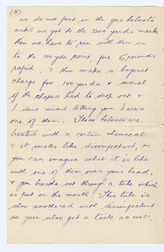 (8)
we do not put on the gas helmets
until we get to the 200 yards mark
then we have to run with them on
to the 100 yds point, fire 5 rounds
rapid, & then make a bayonet
charge for 100 yards & several
of the chaps had to drop out &
I don't mind telling you I was
one of them. These helmets are
treated with a certain chemical
& it smells like disinfectant, so
you can imagine what it is like
with one of them over your head,
& you breathe out through a tube which
is put in the mouth. This tube is
also smothered with disinfectant
so you also get a taste as well.